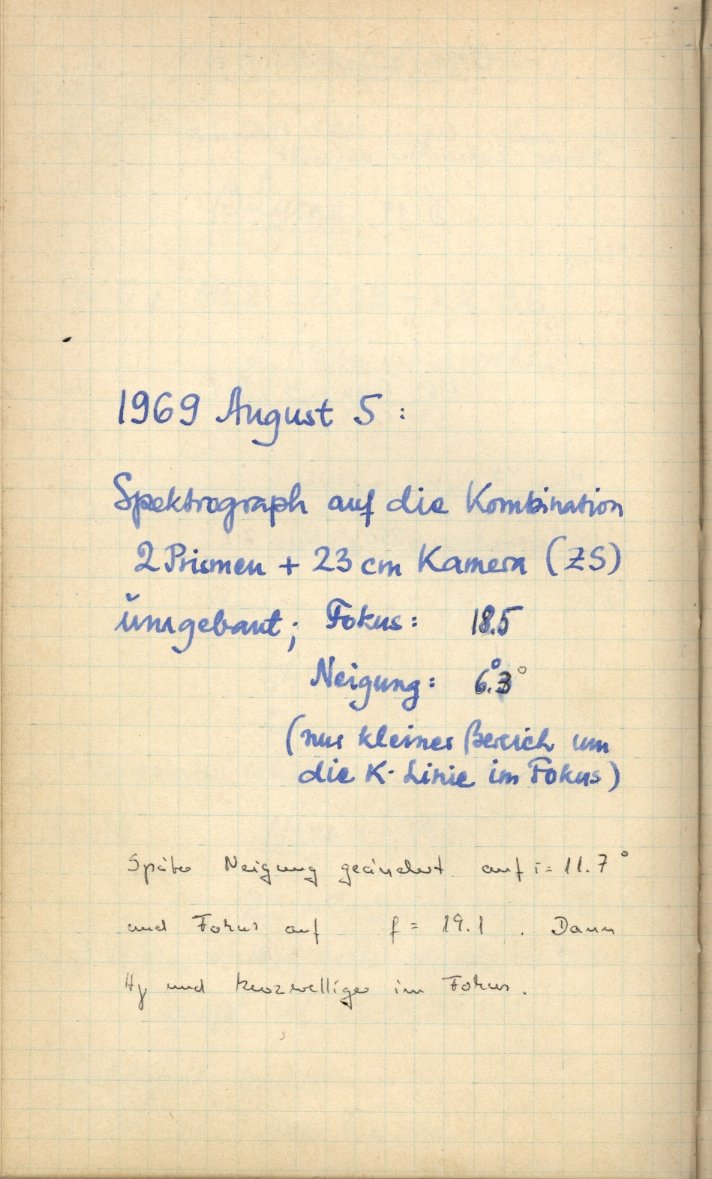 1969 August 5 :
Spektrograph auf die Kombination
2 Prismen + 23 cm Kamera (ZS)
umgebaut; Fokus: 18.5
Neigung: 6.3°
(nur kleiner Bereich um
die K-Linie im Fokus)
Später Neigung geändert auf i = 11.7°
und Fokus auf f = 19.1 . Dann
Hγ und kurzwelliger im Fokus.